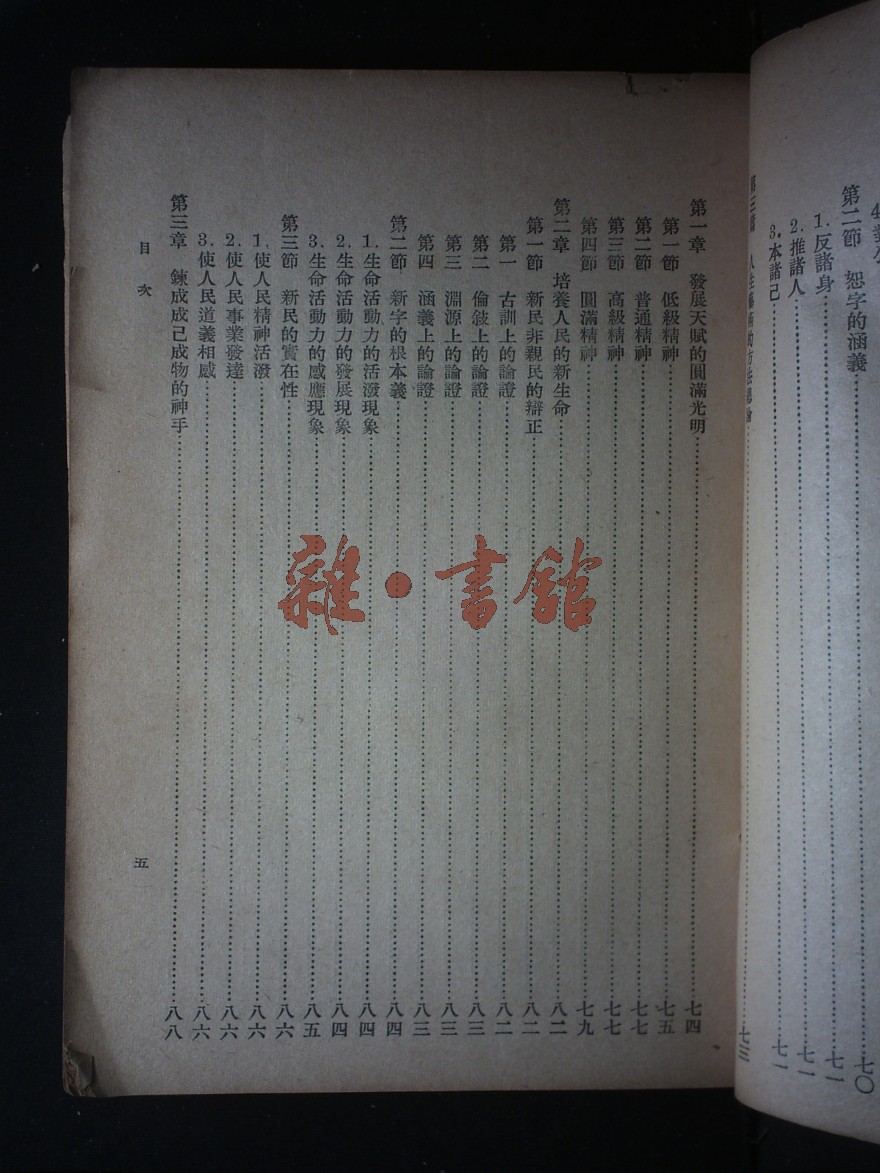 第二節　恕字的涵義……七〇
1.反諸身……七一
2.推諸人……七一
3.本諸己……七一
第一章　發展天賦的圓滿光明……七四
第一節　低級精神……七五
第二節　普通精神……七七
第三節　高級精神……七七
第四節　圓滿精神……七九
第二章　培養人民的新生命……八二
第一節　新民非親民的辯正……八二
第一　古訓上的論證……八二
第二　倫敍上的論證……八三
第三　淵源上的論證……八三
第四　涵義上的論證……八三
第二節　新字的根本義……八四
1.生命活動力的活潑現象……八四
2.生命活動力的發展現象……八四
3.生命活動力的感應現象……八五
第三節　新民的實在性……八六
1.使人民精神活潑……八六
2.使人民事業發達……八六
3.使人民道義相感……八六
第三章　鍊成成己成物的神手……八八
目次
五
雜·書館